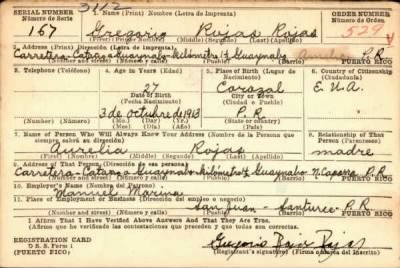 3112
SERIAL NUMBER 1. Name (Print) Nombre (Letra de Imprenta) ORDER NUMBER
Número de Serie Número de Orden
167 Gregorio Rojas Rojas 529
(First) (Primer Nombre) (Middle) (Segundo) (Last) (Apellido)
2. Address (Print) Dirección (Letra de Imprenta)
Carretera-Cataño-Guaynabo-Kilómetro 7 Guaynabo P.R.
(Number and street) (Número y calle) (Town) (Pueblo) PUERTO RICO
3. Telephone (Teléfono) 4. Age in Years (Edad) 5. Place of Birth (Lugar de Nacimiento) 6. Country of Citizenship (Ciudadanía)
27 Corozal E.U.A.
Date of Birth (Fecha Nacimiento) City or Town (Ciudad o Pueblo)
3 de octubre de 1913 P.R.
(Number) (Número) (Mo.) (Mes) (Day) (Día) (Yr.) (Año) PUERTO RICO
7. Name of Person Who Will Always Know Your Address (Nombre de la Persona que siempre sabrá su dirección) 8. Relationship of That Person (Parentesco)
Aurelia Rojas madre
(First) (Primer Nombre) (Middle) (Segundo) (Last) (Apellido)
9. Address of That Person (Dirección de esa persona)
Carretera-Cataño-Guaynabo-kilómetro 7 Guaynabo P.R.
(Number and street) (Número y calle) (Town) (Pueblo) PUERTO RICO
10. Employer's Name (Nombre del Patrono)
Manuel
11. Place of Employment or Business (Dirección del empleo o negocio)
San Juan - Santurce - P.R.
(Number and street) (Número y calle) (Town) (Pueblo) PUERTO RICO
I Affirm That I Have Verified Above Answers And That They Are True.
(Afirmo que he verificado las contestaciones que preceden y que todas son correctas).
REGISTRATION CARD
D. S. S. Form 1
(PUERTO RICO)
Gregorio Rojas Rojas
(Registrant's signature) (Firma autógrafa del inscrito)